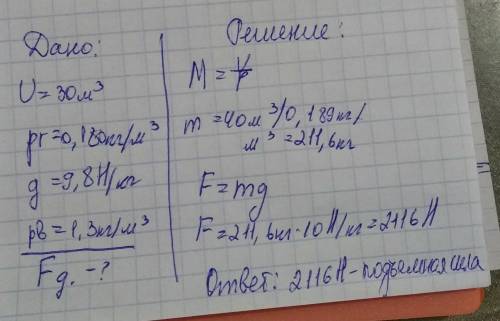 Дано:
U = 30 м³
pг = 0,180 кг/м³
g = 9,8 Н/кг
pв = 1,3 кг/м³
Fg. - ?
Решение:
M = V/p
m = 40 м³/0,189 кг/
м³ = 211,6 кг
F = mg
F = 211,6 кг · 10 Н/кг = 2116 Н
Ответ: 2116 Н - подъемная сила